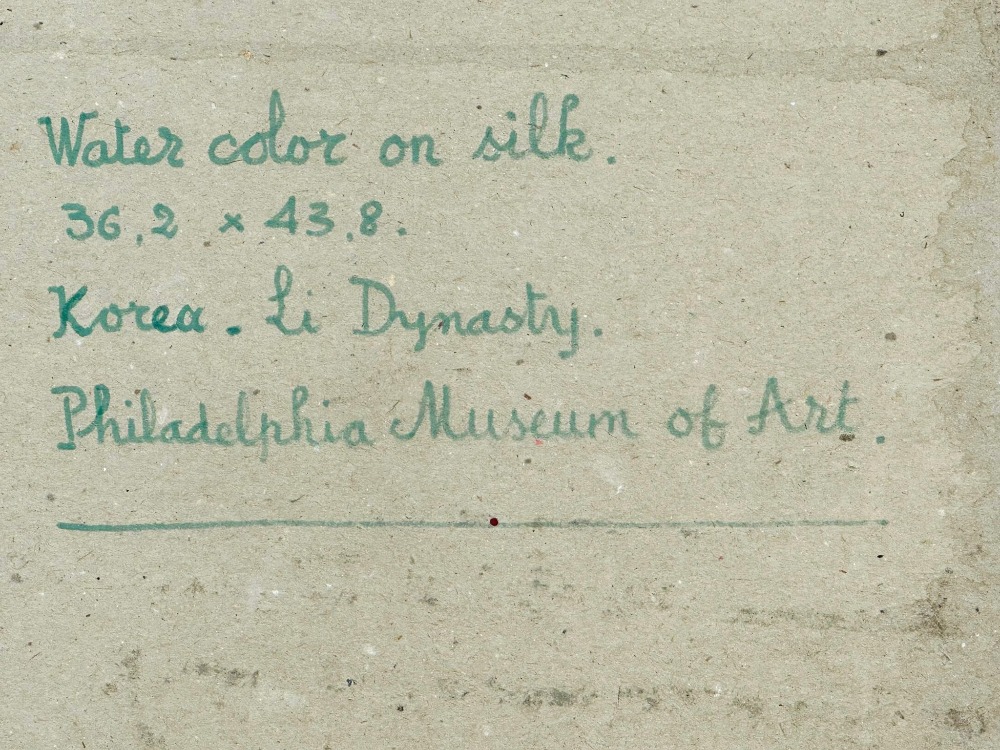 Water color on silk.
36.2 x 43.8.
Korea. Li Dynasty.
Philadelphia Museum of Art.